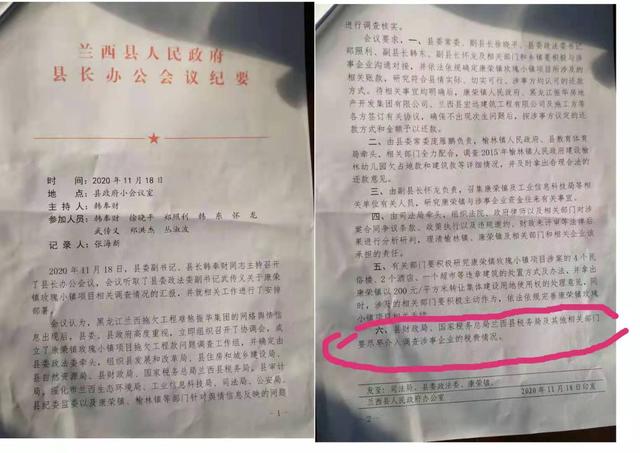 兰西县人民政府
县长办公会议纪要
时 间：2020年11月18日
地 点：县政府小会议室
主 持 人：韩奉财
参加人员：韩奉财 徐晓平 郑照利 韩 东 怀 龙
武传义 郑洪杰 丛淑波
记 录 人：张海新
2020年11月18日，县委副书记、县长韩奉财同志主持召开
了县长办公会议，会议听取了县委政法委副书记武传义关于康荣
镇玫瑰小镇项目相关调查情况的汇报，并就相关工作进行了安排
部署。
会议认为，黑龙江兰西拖欠工程艰熬振华集团的网络舆情信
息出现后，县委、县政府高度重视，立即组织召开了协调会，成
立了康荣镇玫瑰小镇项目拖欠工程款问题调查工作组，并确定由
县委政法委牵头，组织县发展和改革局、县住房和城乡建设局、
县自然资源局、县财政局、国家税务总局兰西县税务局、县审计
局、绥化市兰西生态环境局、工业信息科技局、司法局、公安局、
县纪委监委以及康荣镇、榆林镇等部门针对舆情信息反映的问题
- 1 -
进行调查核实。
会议要求，一、县委常委、副县长徐晓平、县委政法委书记
郑照利、副县长韩东、副县长怀龙及相关部门和乡镇要积极与涉
事企业沟通对接，并依法依规确定康荣镇玫瑰小镇项目所涉及的
相关账款，研究符合县情实际、切实可行、涉事方均认可的还款
方式。待相关事宜均明晰后，康荣镇人民政府、黑龙江振华房地
产开发集团有限公司、兰西县宏达建筑工程有限公司及施工方等
各方签订有关协议，确保不出现次生问题后，按涉事方议定的还
款方式和金额予以还款。
二、由县委常委庞雁鹏负责，榆林镇人民政府、县教育体育
局牵头，相关部门全力配合，调查2015年榆林镇人民政府建设榆
林幼儿园欠占地款和建筑款等详细情况，并及时拿出合理合法的
还款意见。
三、由副县长怀龙负责，召集康荣镇及工业信息科技局等相
关单位有关人员，研究康荣镇与涉事企业资金往来有关事宜。
四、由司法局牵头，组织法院、政府律师以及相关部门对涉
案合同争议条款、政策执行以及违规违约、财政未评审等法律后
果进行分析研判，理清榆林镇、康荣镇及相关部门和相关企业该
承担的责任。
五、有关部门要积极研究康荣镇玫瑰小镇项目涉案的4个民
俗楼、2个酒店、一个超市等违章建筑的处置方式及办法，并拿出
康荣镇以200元/平方米转让集体建设用地使用权的处理意见，同
时，涉及的相关部门要积极主动作为，依法依规完善康荣镇玫瑰
小镇项目相关手续。
六、县财政局、国家税务总局兰西县税务局及其他相关部门
要尽早介入调查涉事企业的税费情况。
发至：司法局、县委政法委、康荣镇。
兰西县人民政府办公室 2020年11月18日印发
- 2 -